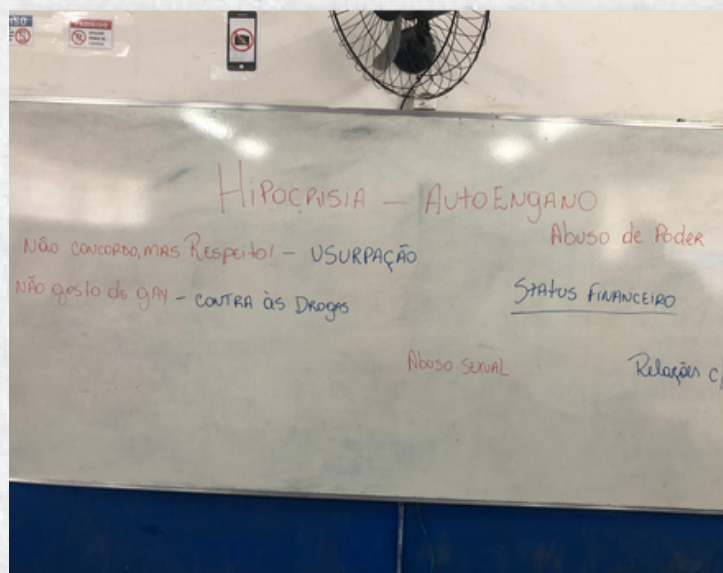 PROIBIDO
HIPOCRISIA — AUTOENGANO
Abuso de Poder
NÃO CONCORDO, MAS RESPEITO! — USURPAÇÃO
NÃO gosto de gAY — CONTRA às DROgAS
STATUS FINANCEIRO
Abuso SEXUAL
Relações c/